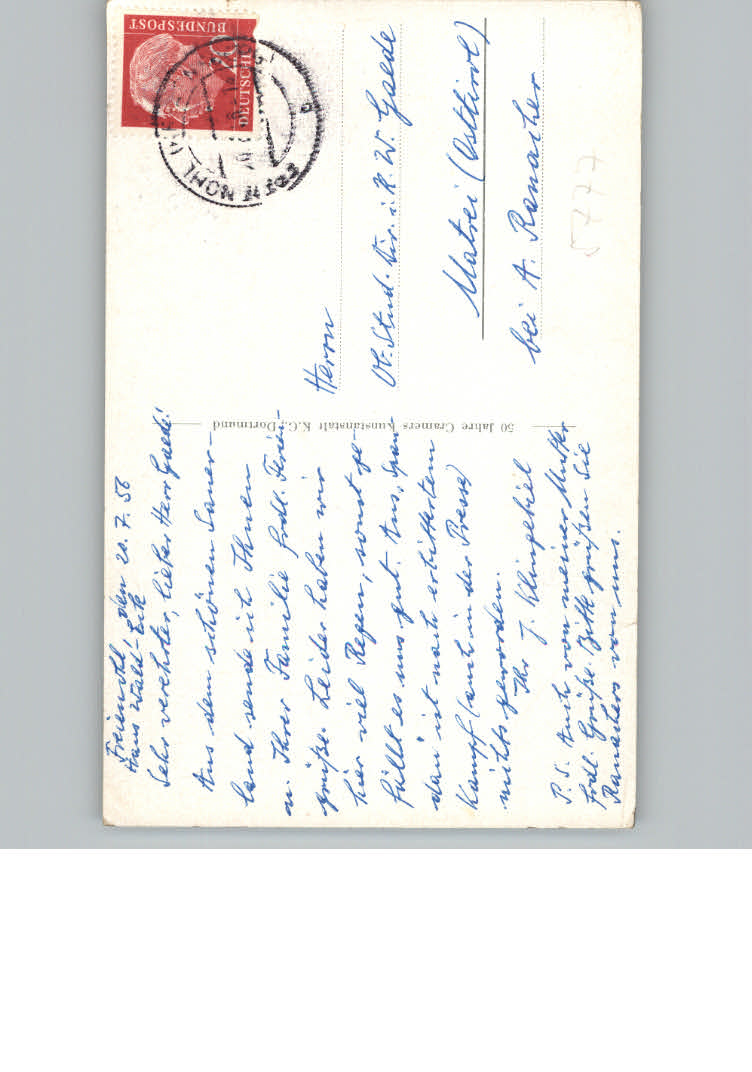 Freienohl, den 20.7.56
Haus Wald-Eck
Sehr verehrter, lieber Herr Gaede!
Aus dem schönen Sauer-
land sende ich Ihnen
u. Ihrer Familie frdl. Ferien-
grüße. Leider haben wir
hier viel Regen, sonst ge-
fällt es uns gut. Aus Span
dau ist nach erbittertem
Kampf (auch in der Presse)
nichts geworden.
Ihr J. Klingebiel
P.S. Auch von meiner Mutter
frdl. Grüße. Bitte grüßen Sie
Ranachers von uns.
50 Jahre Cramers Kunstanstalt K.G., Dortmund
DEUTSCHE
BUNDESPOST
20
Herrn
Ob. Stud. Dir. i. R. W. Gaede
Matrei (Osttirol)
bei A. Ranacher
5777